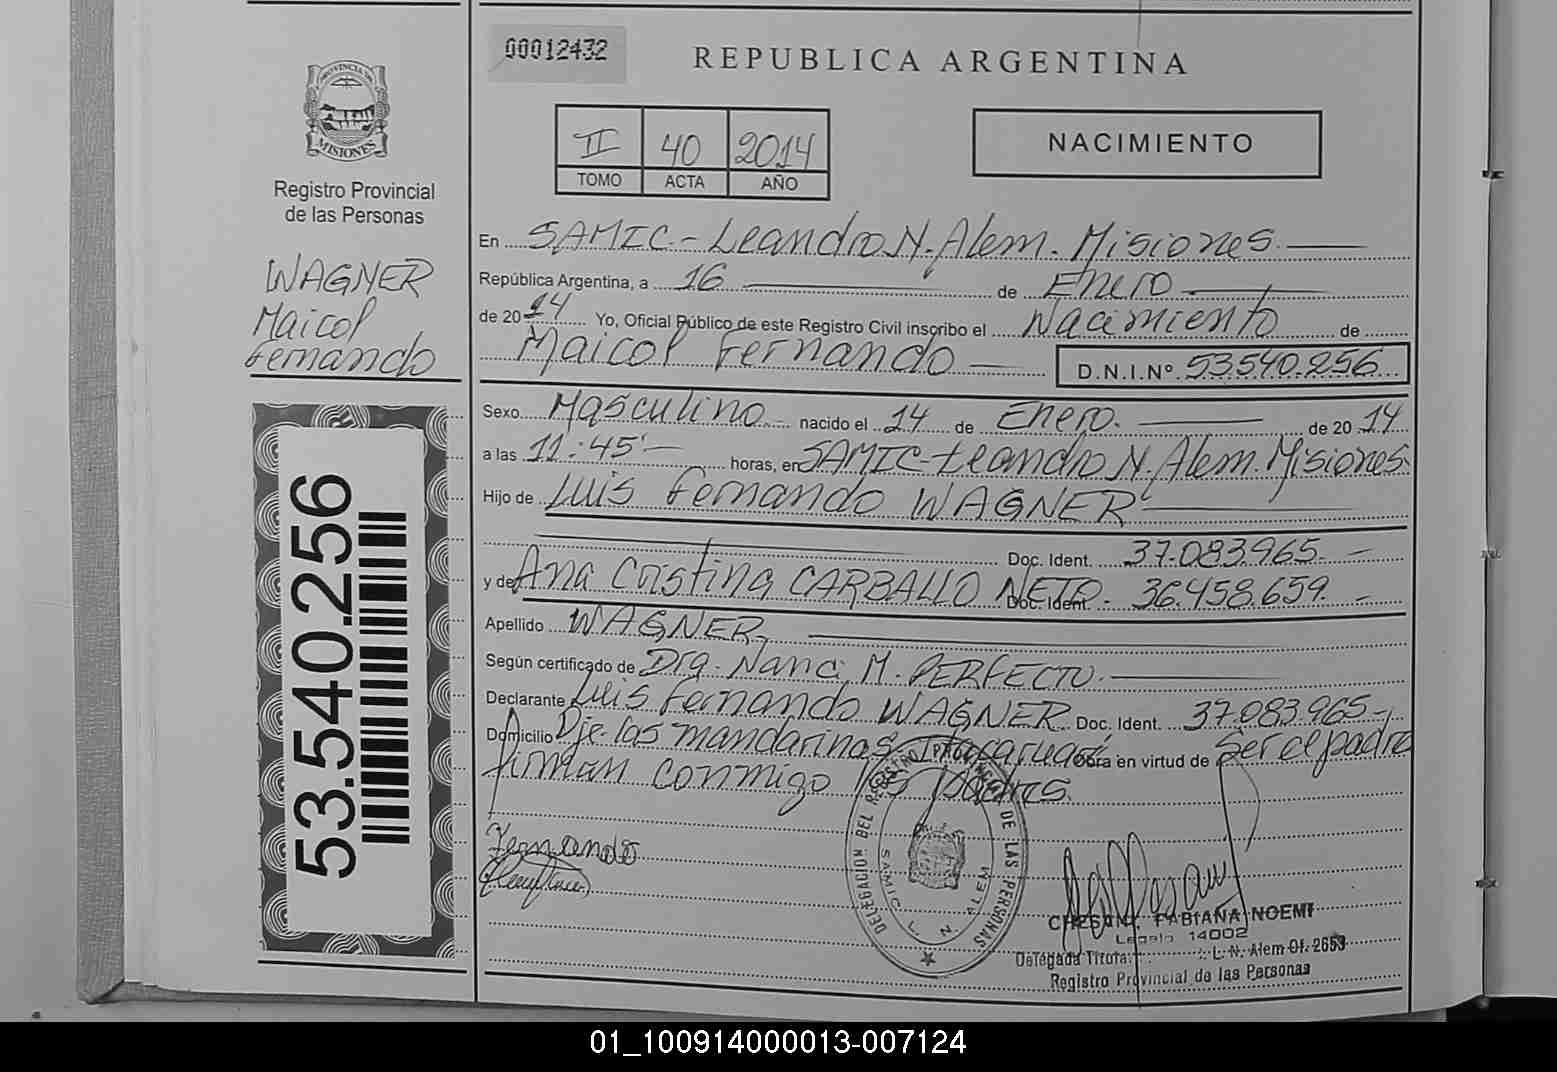 00012432
REPUBLICA ARGENTINA
PROVINCIA DE
MISIONES
Registro Provincial
de las Personas
II 40 2014
TOMO ACTA AÑO
NACIMIENTO
WAGNER
Maicol
Fernando
En SAMIC - Leandro N. Alem. Misiones.
República Argentina, a 16 de Enero
de 2014 Yo, Oficial Público de este Registro Civil inscribo el Nacimiento de
Maicol Fernando D.N.I.Nº 53540.256
Sexo Masculino nacido el 14 de Enero. de 20 14
a las 11:45' horas, en SAMIC-Leandro N. Alem. Misiones.
Hijo de Luis Fernando WAGNER
Doc. Ident. 37.083.965.-
y de Ana Cristina CARBALLO NETO. Doc. Ident. 36.458.659. -
Apellido WAGNER.
Según certificado de Dra. Nanci M. PERFECTO.
Declarante Luis Fernando WAGNER Doc. Ident. 37.083.965-,
Domicilio Pje. las mandarinas, Obra en virtud de Ser el padre
firman conmigo los padres.
Fernando
53.540.256
DELEGACION DEL REGISTRO PROVINCIAL DE LAS PERSONAS
SAMIC L. N. ALEM
CHESANI, FABIANA NOEMI
Legajo 14002
Delegada Titular L. N. Alem Of. 2653
Registro Provincial de las Personas
01_100914000013-007124